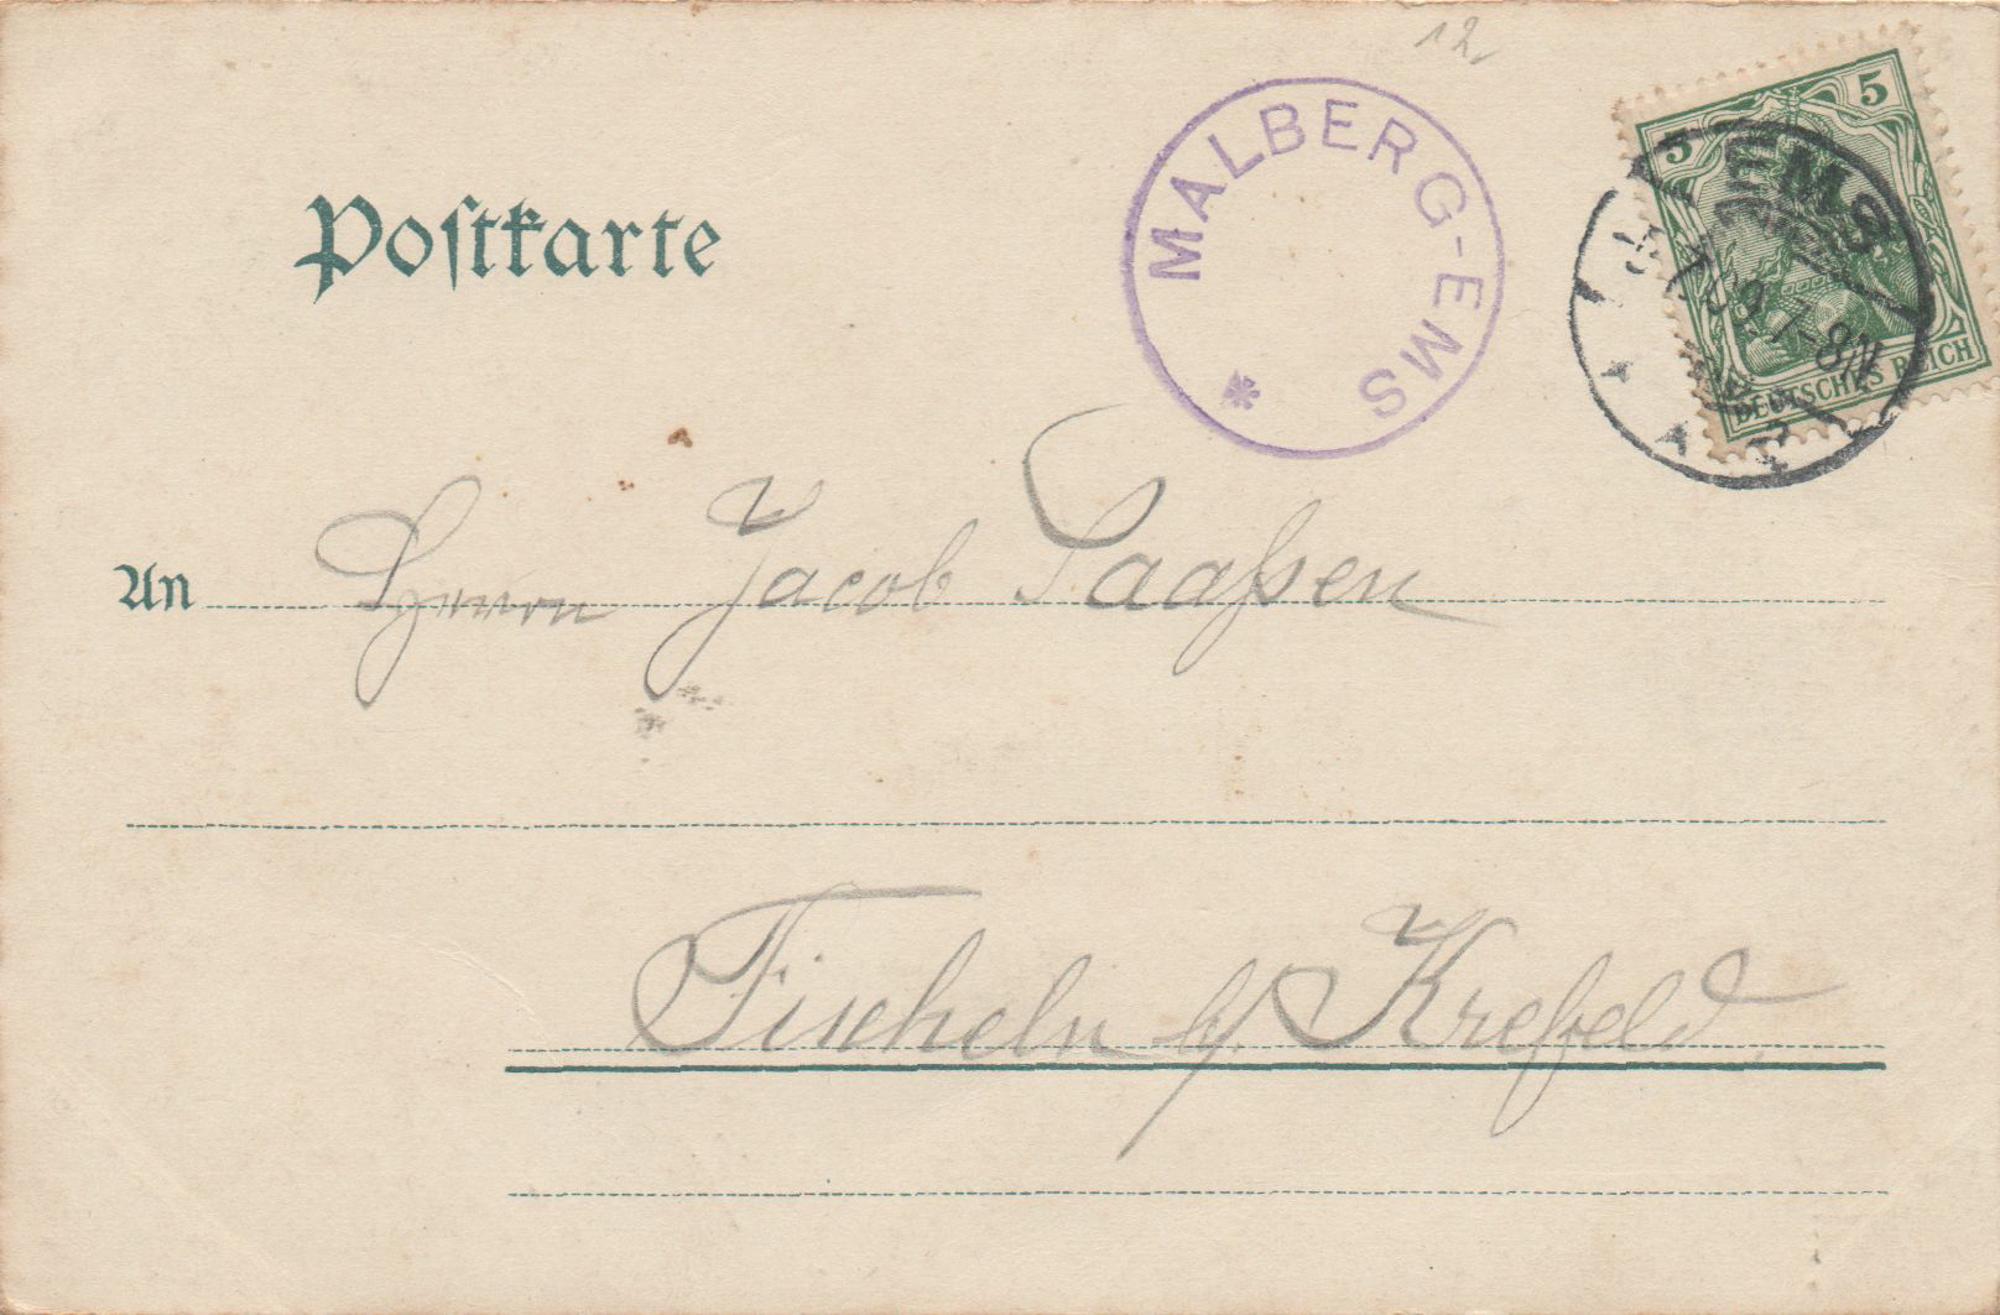 12
Postkarte
MALBERG-EMS
5 5
EMS
7-8N
DEUTSCHES REICH
An Herrn Jacob Paaßen
Fischeln b/ Krefeld.